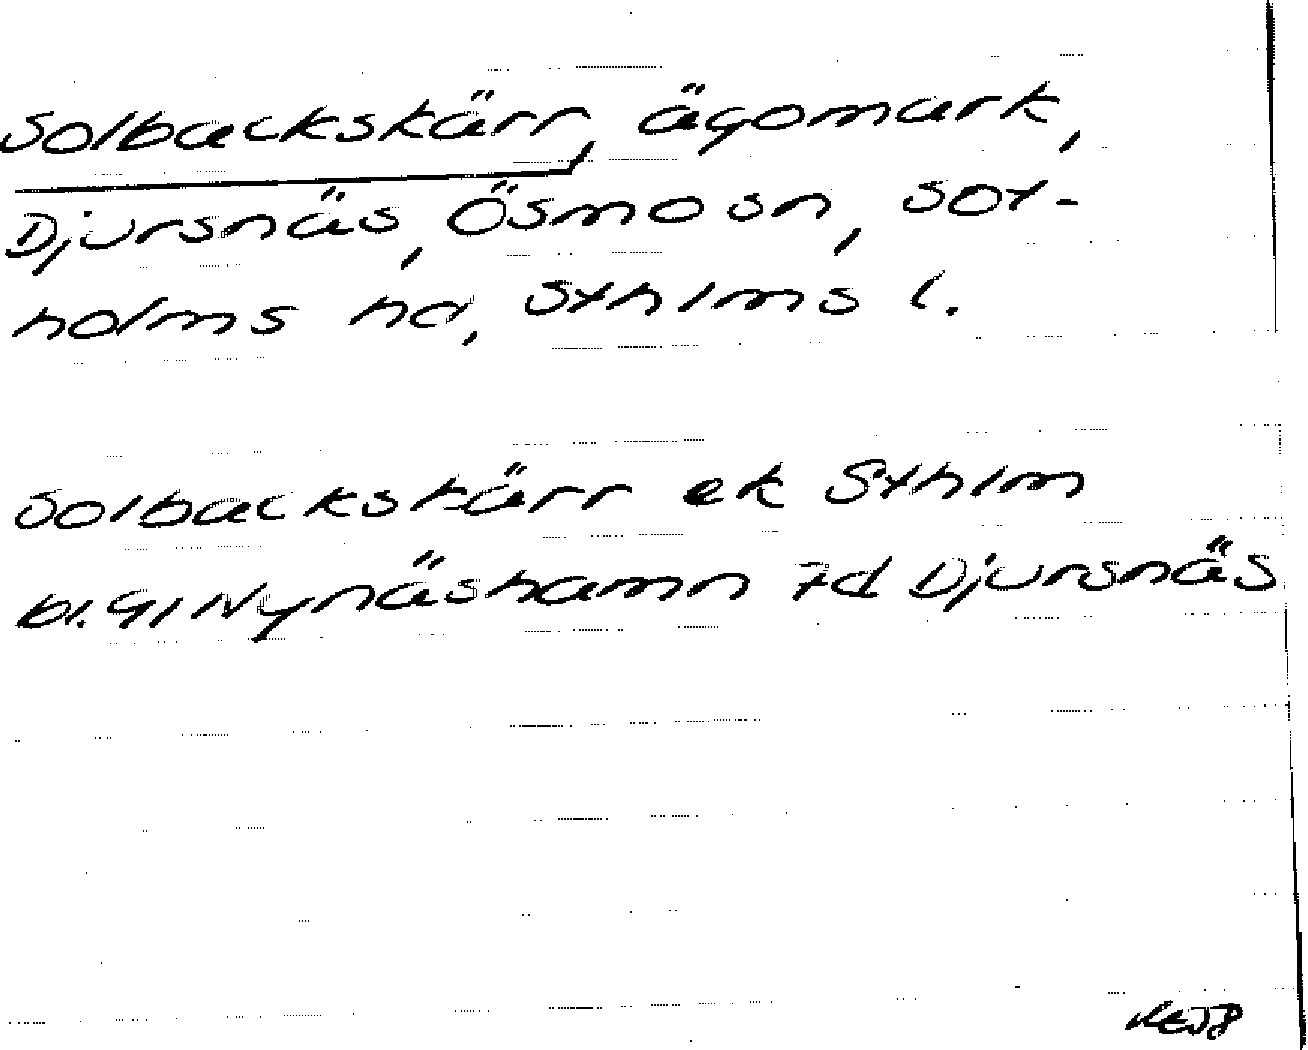 Solbackskärr, ägomark,
Djursnäs, Ösmo sn, Sot-
holms hd, Sthlms l.
Solbackskärr ek Sthlm
bl. 91 Nynäshamn 7d Djursnäs